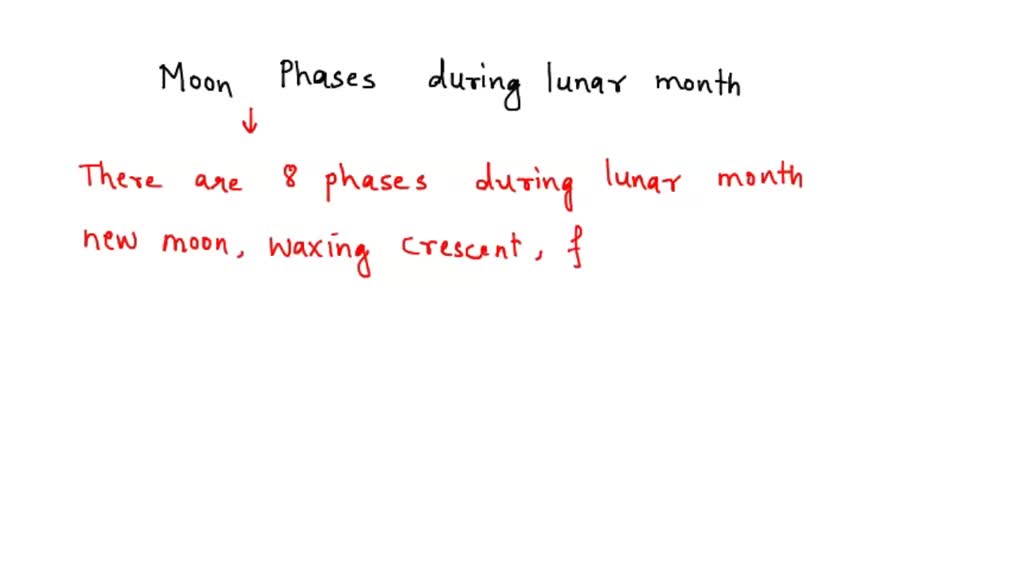 Moon Phases during lunar month
There are 8 phases during lunar month
new moon, waxing crescent, f